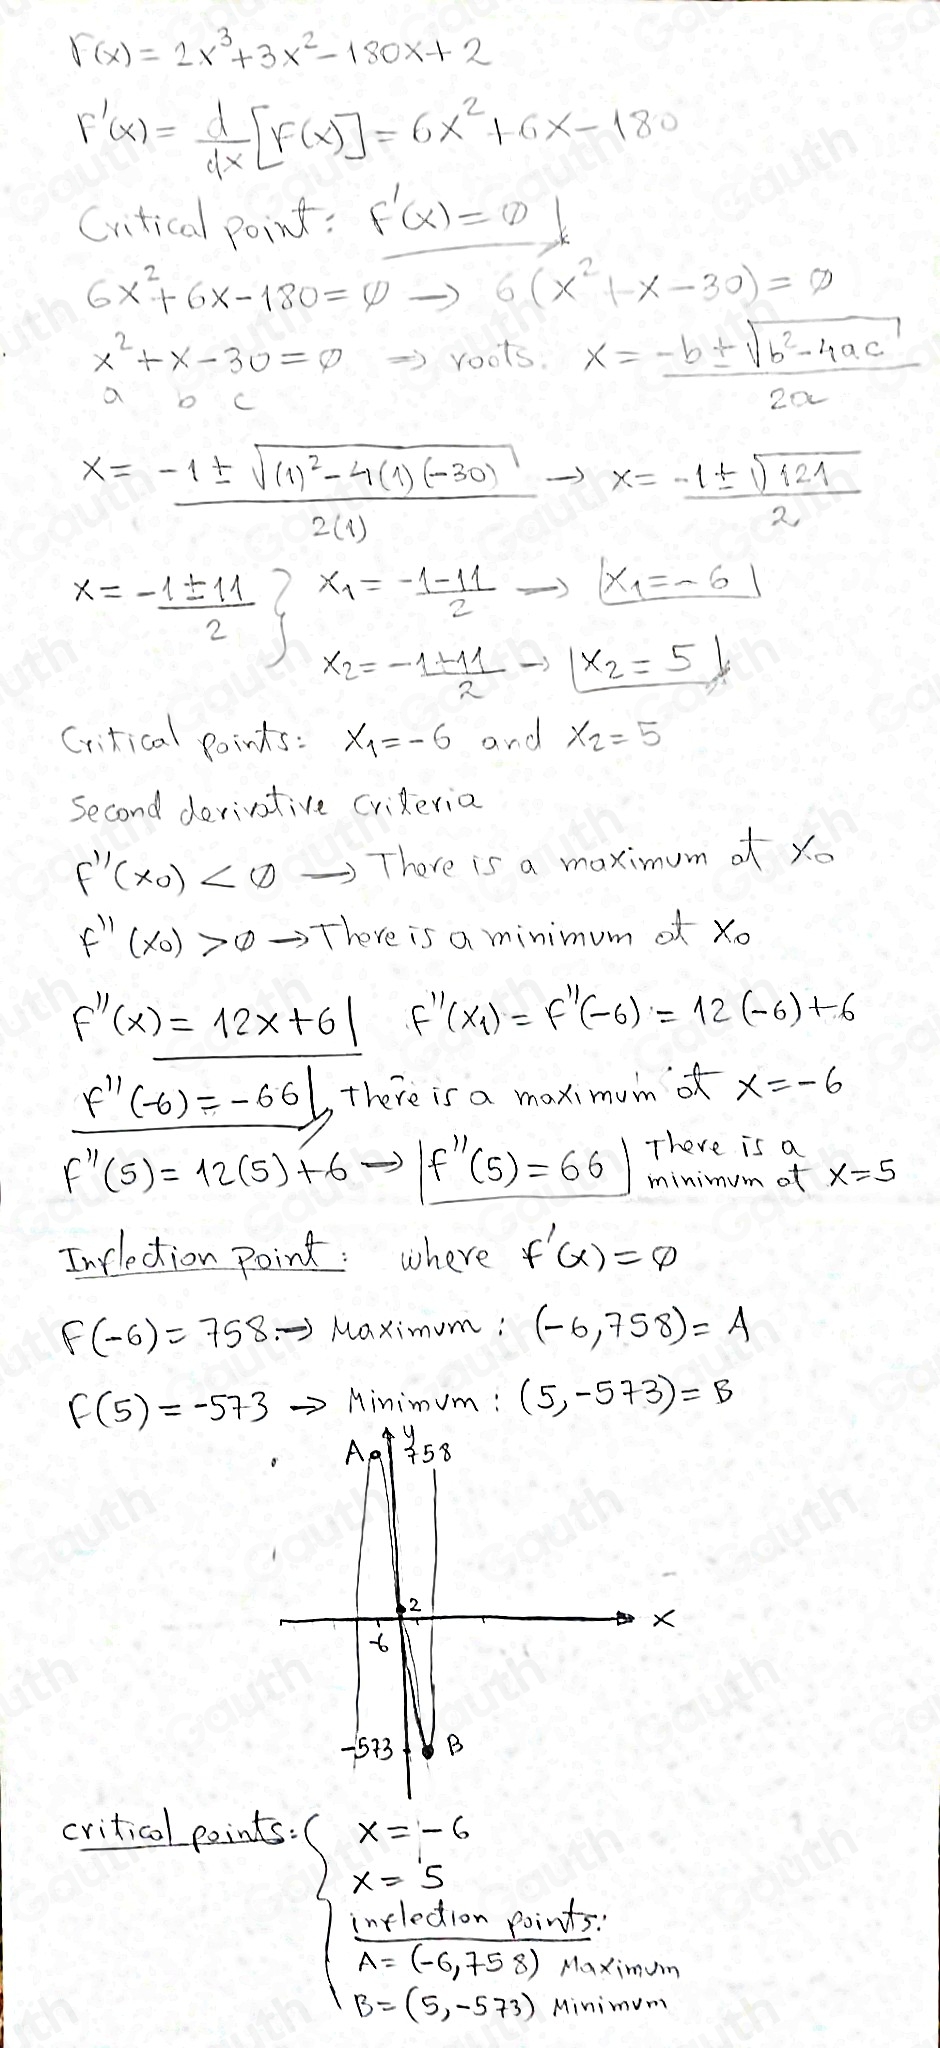 F(x) = 2x³+3x²-180x+2
F'(x) = d/dx [F(x)] = 6x²+6x-180
Critical point: F'(x) = ∅
6x²+6x-180=∅ → 6(x²+x-30)=∅
x²+x-30=∅ ⇒ roots. x = (-b±√(b²-4ac))/2a
a b c
x = (-1±√((1)²-4(1)(-30)))/2(1) → x = (-1±√121)/2
x = (-1±11)/2 } x₁ = (-1-11)/2 → x₁=-6
x₂ = (-1+11)/2 → x₂=5
Critical points: x₁=-6 and x₂=5
Second derivative criteria
f''(x₀) < ∅ → There is a maximum at x₀
f''(x₀) > ∅ → There is a minimum at x₀
f''(x) = 12x+6 f''(x₁) = f''(-6) = 12(-6)+6
f''(-6) = -66 There is a maximum at x=-6
f''(5) = 12(5)+6 → f''(5) = 66 There is a
minimum at x=5
Inflection point: where f'(x)=∅
F(-6) = 758 → Maximum: (-6,758)= A
F(5) = -573 → Minimum: (5,-573)= B
y
A 758
2
-6 x
-573 B
critical points: { x = -6
x = 5
inflection points:
A = (-6,758) Maximum
B = (5,-573) Minimum
Gauth